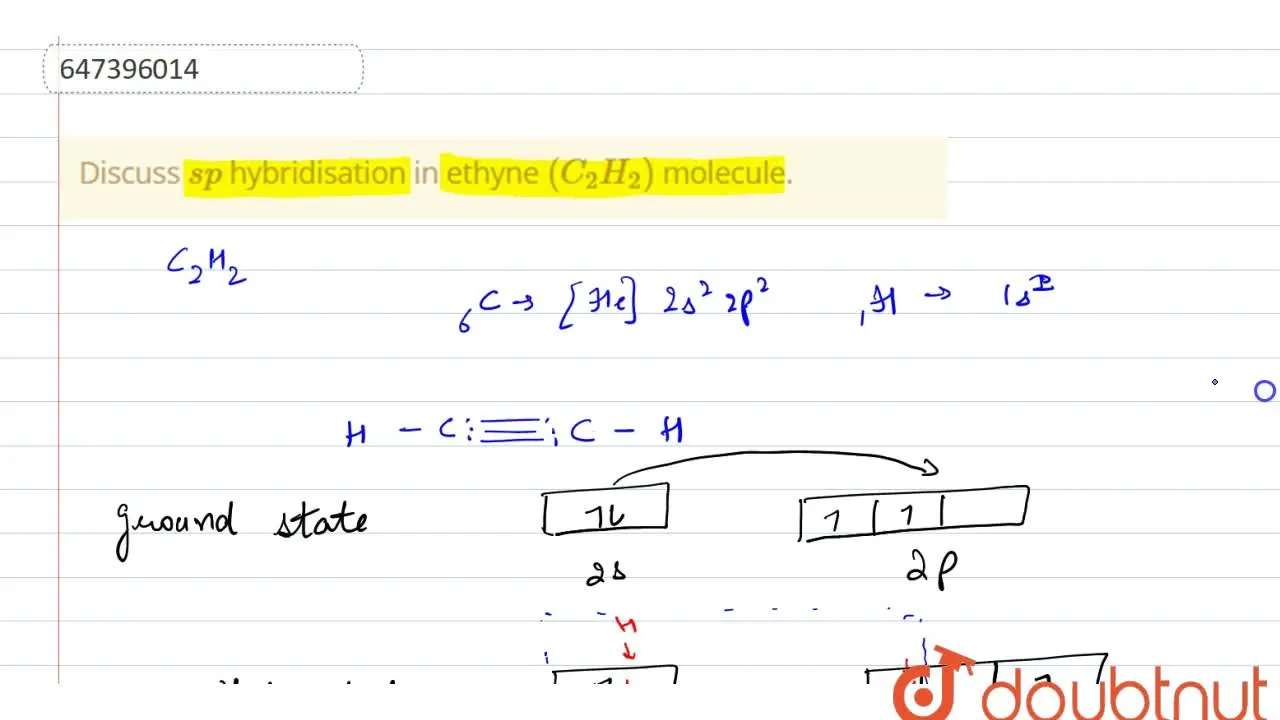 647396014
Discuss sp hybridisation in ethyne (C₂H₂) molecule.
C₂H₂
₆C → [He] 2s² 2p² ₁H → 1s
H – C ≡ C – H
ground state 1l 1 1
2s 2p
H
doubtnut